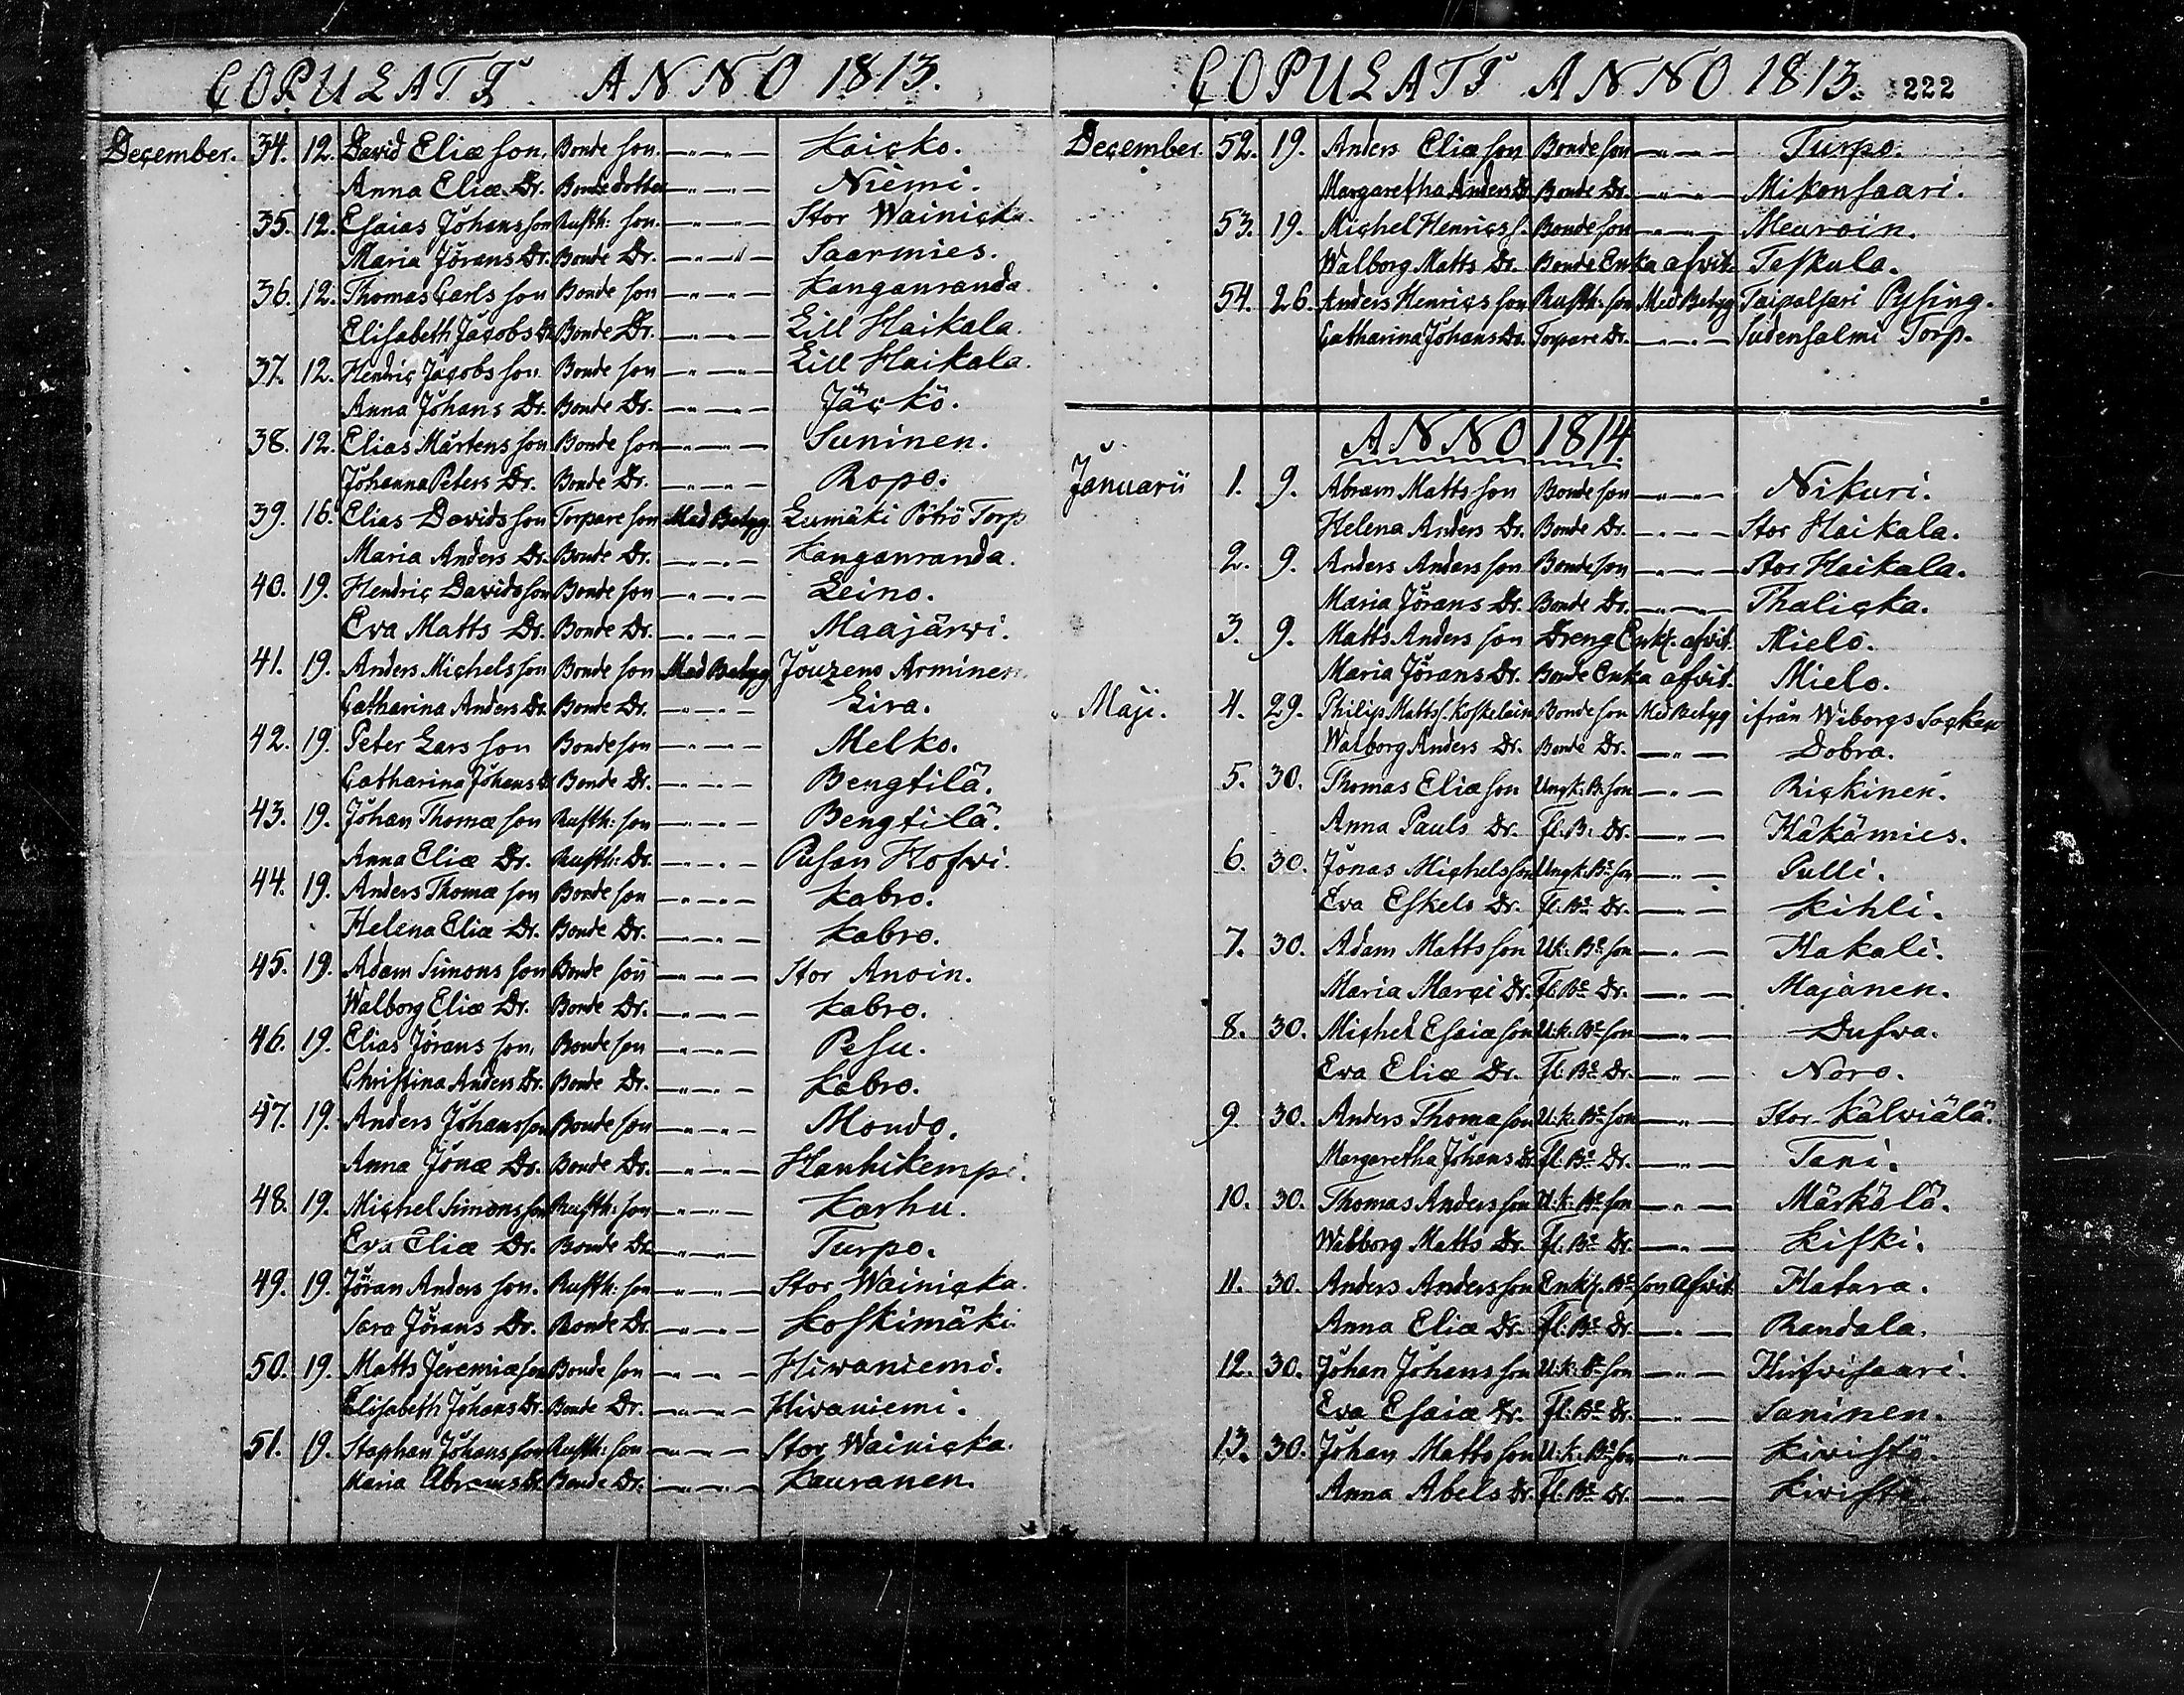 COPULATI ANNO 1813.
December. 34. 12. David Eliæ son. Bonde son. —„—„— Kaicko.
Anna Eliæ Dr. Bonde dotter —„—„— Niemi.
35. 12. Esaias Johans son Rusth: son. —„—„— Stor Wainicka.
Maria Jörans Dr. Bonde Dr. —„—„— Saarmies.
36. 12. Thomas Carls son Bonde son —„—„— Kanganranda.
Elisabeth Jacobs Dr Bonde Dr. —„—„— Lill Haikala.
37. 12. Hendric Jacobs son Bonde son —„—„— Lill Haikala.
Anna Johans Dr. Bonde Dr. —„—„— Jäckö.
38. 12. Elias Mårtens son Bonde son —„—„— Suninen.
Johanna Peters Dr. Bonde Dr. —„—„— Ropo.
39. 16. Elias Davids son Torpare son Med Betyg Lumäki Pötrö Torp
Maria Anders Dr. Bonde Dr. —„—„— Kanganranda.
40. 19. Hendric Davidsson Bonde son —„—„— Leino.
Eva Matts Dr. Bonde Dr. —„—„— Maajärwi.
41. 19. Anders Michelsson Bonde son Med Betyg Jouzeno Arminen
Catharina Anders Dr. Bonde Dr. —„—„— Lira.
42. 19. Peter Lars son Bonde son —„—„— Melko.
Catharina Johans Dr Bonde Dr. —„—„— Bengtilä.
43. 19. Johan Thomæ son Rusth: son —„—„— Bengtilä.
Anna Eliæ Dr. Rusth: Dr. —„—„— Pusan Hofwi.
44. 19. Anders Thomæ son Bonde son —„—„— Kabro.
Helena Eliæ Dr. Bonde Dr. —„—„— Kabro.
45. 19. Adam Simons son Bonde son —„—„— Stor Anoin.
Walborg Eliæ Dr. Bonde Dr. —„—„— Kabro.
46. 19. Elias Jörans son, Bonde son —„—„— Pesu.
Christina Anders Dr. Bonde Dr. —„—„— Kabro.
47. 19. Anders Johansson Bonde son —„—„— Mondo.
Anna Jonæ Dr. Bonde Dr. —„—„— Hanhikempi.
48. 19. Michel Simons son Rusth: son —„—„— Karhu.
Eva Eliæ Dr. Bonde Dr. —„—„— Turpo.
49. 19. Jöran Anders son. Rusth: son —„—„— Stor Wainicka.
Sara Jörans Dr. Bonde Dr. —„—„— Koskimäki
50. 19. Matts Jeremiæ son Bonde son —„—„— Hiwaniemi.
Elisabeth Johans Dr. Bonde Dr. —„—„— Hiwaniemi.
51. 19. Staphan Johans son Rusth: son —„—„— Stor Wainicka.
Maria Abrams Dr Bonde Dr. —„—„— Kauranen.
COPULATI ANNO 1813. 222
December 52. 19. Anders Eliæ son Bonde son —„—„— Turpo.
Margaretha Anders D. Bonde Dr. —„—„— Mikonsaari.
53. 19. Michel Henrics s. Bonde son —„—„— Meuroin.
Walborg Matts Dr. Bonde Enka afvit. Taskula.
54. 26. Anders Henrics son Rusth: son Med Betyg Taipalsari Pysing.
Catharina Johans Dr. Torpare Dr. —„—„— Sudensalmi Torp.
ANNO 1814
Januarii 1. 9. Abram Matts son Bonde son —„—„— Nikuri.
Helena Anders Dr. Bonde Dr. —„—„— Stor Haikala.
2. 9. Anders Anders son Bonde son —„—„— Stor Haikala.
Maria Jörans Dr. Bonde Dr. —„—„— Thalicka.
3. 9. Matts Anders son Dreng Enkl. afvit. Mielo.
Maria Jörans Dr. Bonde Enka afvit. Mielo.
Maji. 4. 29. Philip Matts s. Koskelain Bonde son Med Betyg ifrån Wiborgs Socken
Walborg Anders Dr. Bonde Dr. —„— Dobra.
5. 30. Thomas Eliæ son Ungk: B: son —„— Rickinen.
Anna Pauls Dr. Fl: B: Dr. —„— Häkämies.
6. 30. Jonas Michelsson Ungk: Be son —„— Pulli.
Eva Eskels Dr. Fl: Be Dr. —„— Kihli.
7. 30. Adam Matts son U:k: Be son —„— Hakali.
Maria Marci Dr. Fl: Be Dr. —„— Majanen.
8. 30. Michel Esaiæ son U:k: Be son —„— Dufva.
Eva Eliæ Dr. Fl: Be Dr. —„— Noro.
9. 30. Anders Thomæ son U:k: Be son —„— Stor Kälviälä.
Margaretha Johans Dr. Fl: Be Dr. —„— Tani.
10. 30. Thomas Anders son U:k: Be son —„— Märkälä.
Walborg Matts Dr. Fl: Be Dr. —„— Kiski.
11. 30. Anders Anders son Enkl. Be son Afvit. Hatara.
Anna Eliæ Dr. Fl: Be Dr. —„— Randala.
12. 30. Johan Johans son U:k: Be son —„— Hirfvisaari.
Eva Esaiæ Dr. Fl: Be Dr. —„— Saninen.
13. 30. Johan Matts son U:k: Be son —„— Kivistö.
Anna Abels Dr. Fl: Be Dr. —„— Kivistö